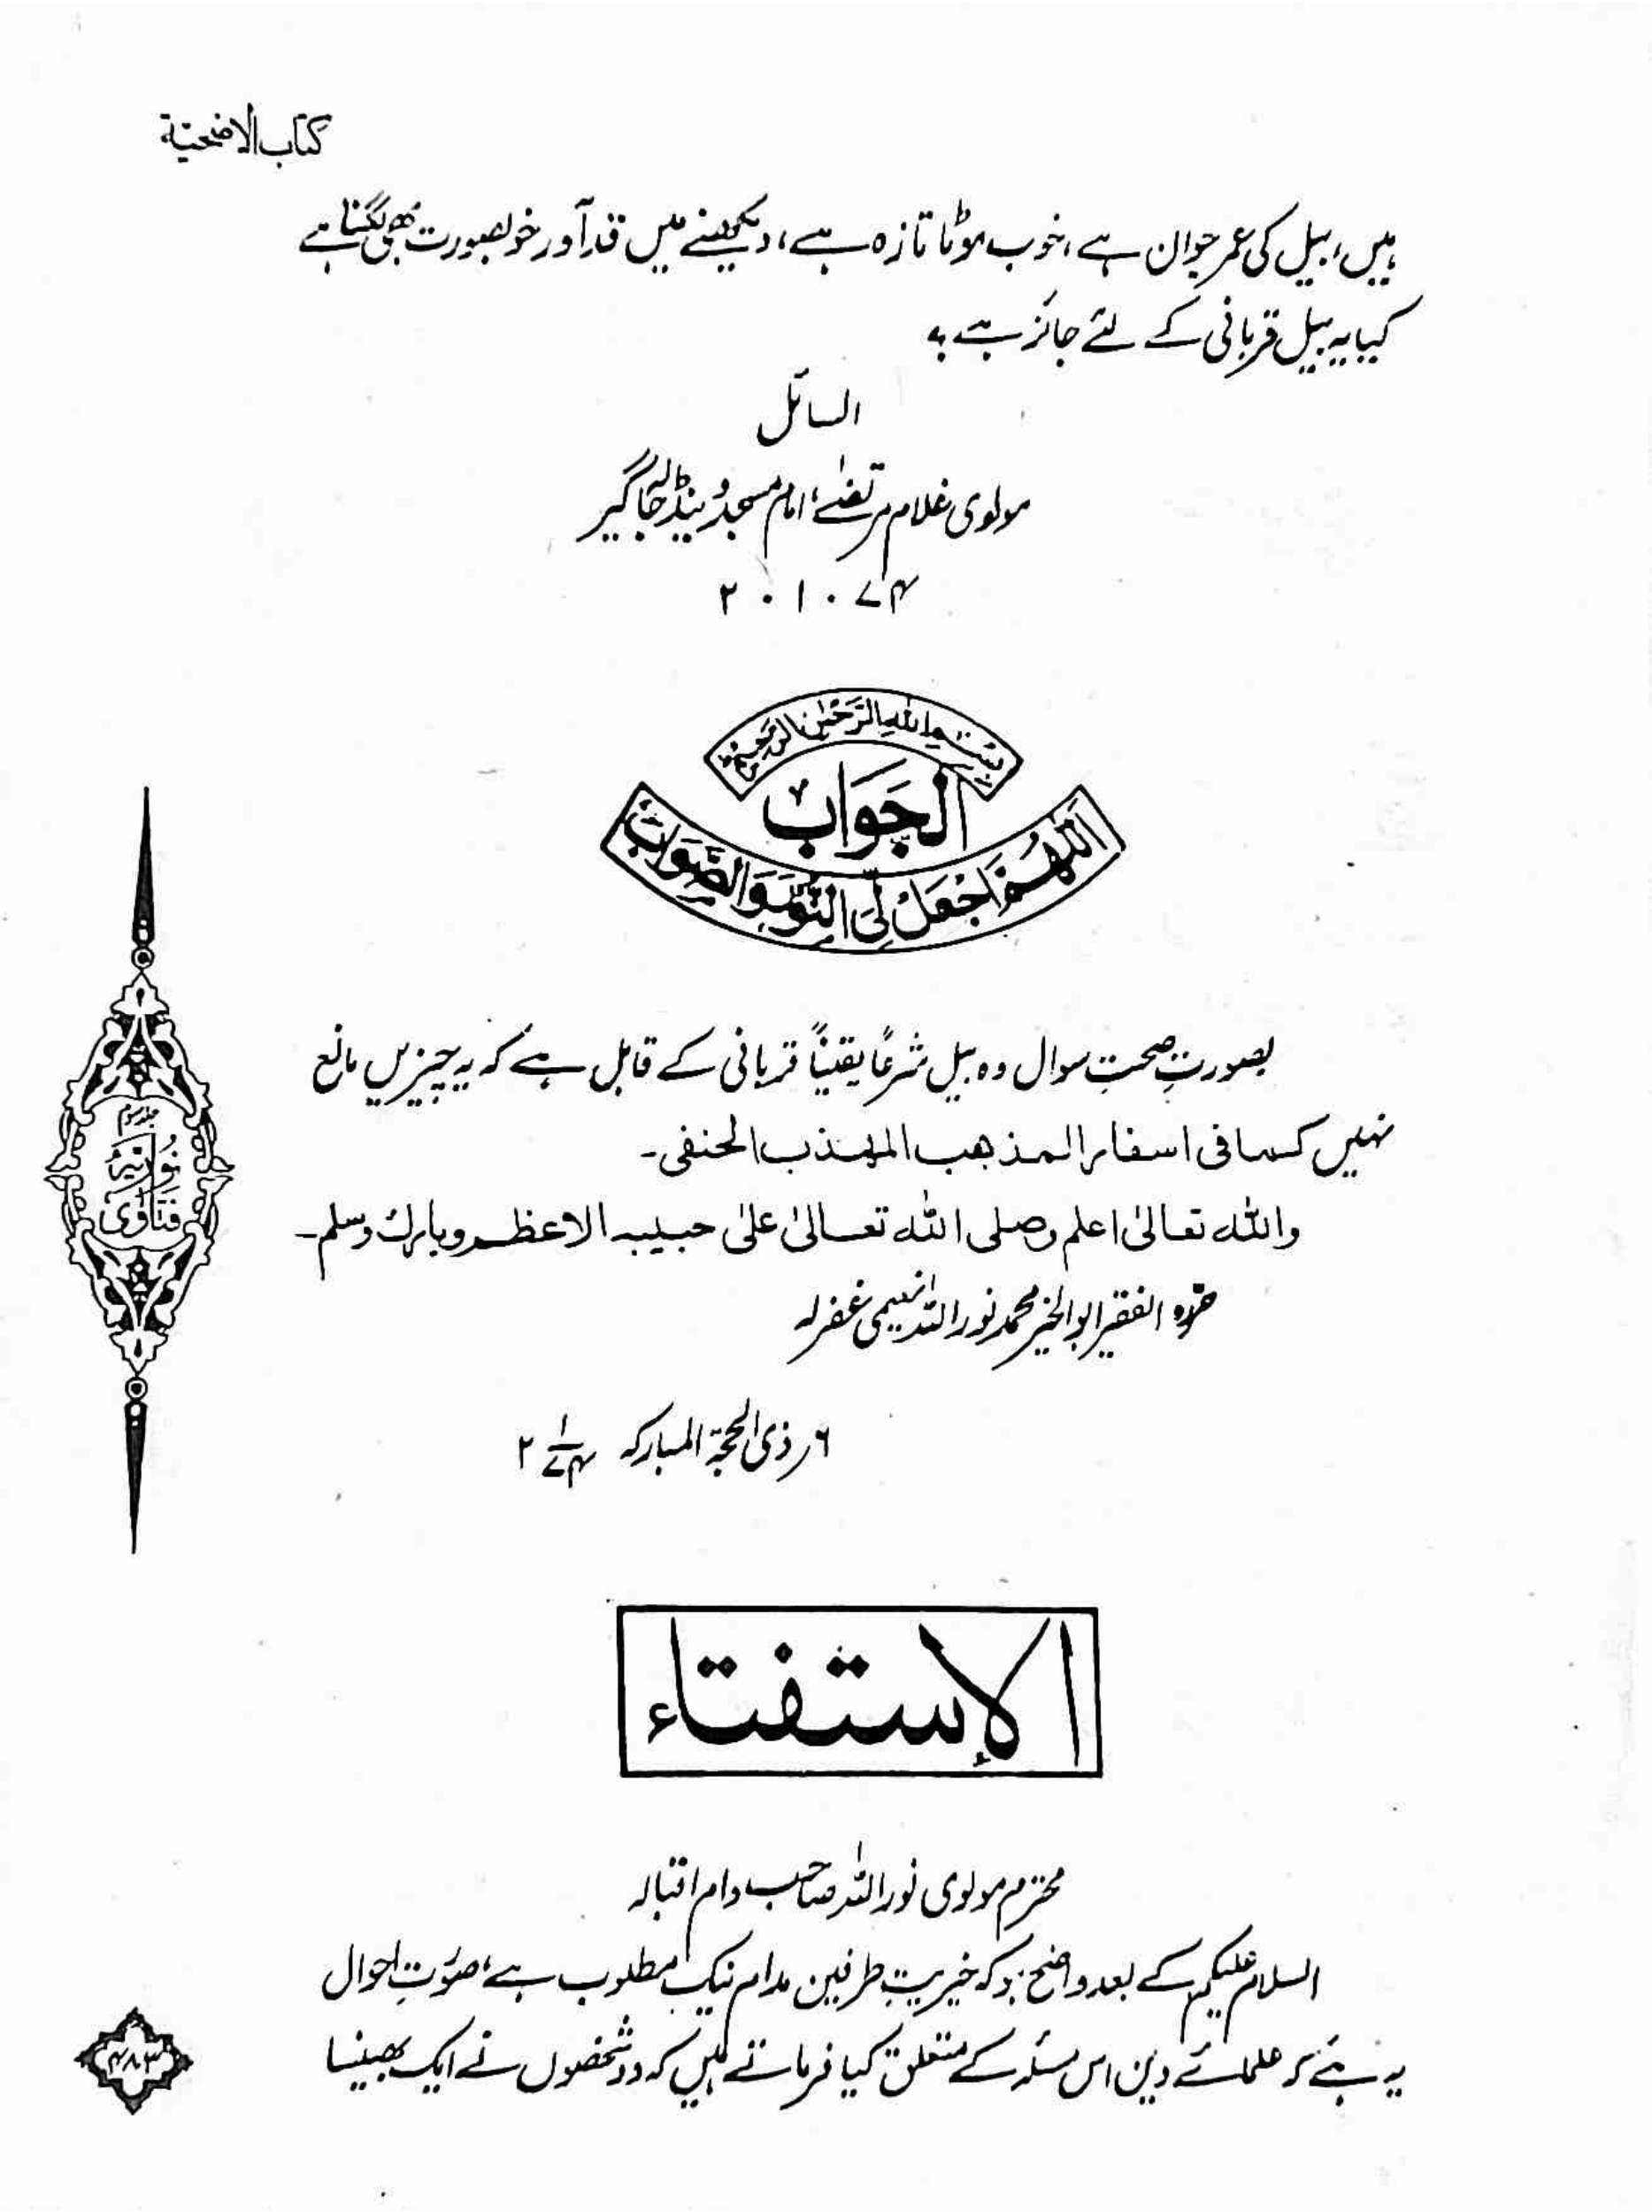 کتاب الاضحیة
ہیں، بیل کی عمر جوان ہے، خوب موٹا تازہ ہے، دیکھنے میں قدآور خوبصورت بھی لگتا ہے
کیا یہ بیل قربانی کے لئے جائز ہے؟
السائل
مولوی غلام مرتضےٰ، امام مسجد پنڈ
۲۰۱۰۷۴
بِسْمِ اللهِ الرَّحْمٰنِ الرَّحِيْمِ
الجَوَابُ
اَللّٰهُمَّ اجْعَلْ لِّيَ النُّوْرَ وَالصَّوَابَ
بصورتِ صحتِ سوال وہ بیل شرعًا یقینًا قربانی کے قابل ہے کہ یہ چیزیں مانع
نہیں کما فی اسفار المذهب المهذب الحنفی۔
واللہ تعالیٰ اعلم وصلی اللہ تعالیٰ علیٰ حبیبہ الاعظم وبارك وسلم۔
حررہ الفقیر ابوالخیر محمد نوراللہ النعیمی غفرلہ
۶ر ذی الحجۃ المبارکہ ۲ ۱ ۷۴
جلد سوم
نُورِیَّہ
فتاویٰ
الاِستفتاء
محترم مولوی نوراللہ صاحب دام اقبالہ
السلام علیکم کے بعد واضح ہو کہ خیریتِ طرفین مدام نیک مطلوب ہے، صورتِ احوال
یہ ہے کہ علمائے دین اس مسئلہ کے متعلق کیا فرماتے ہیں کہ دو شخصوں نے ایک بھینسا
۴۸۳